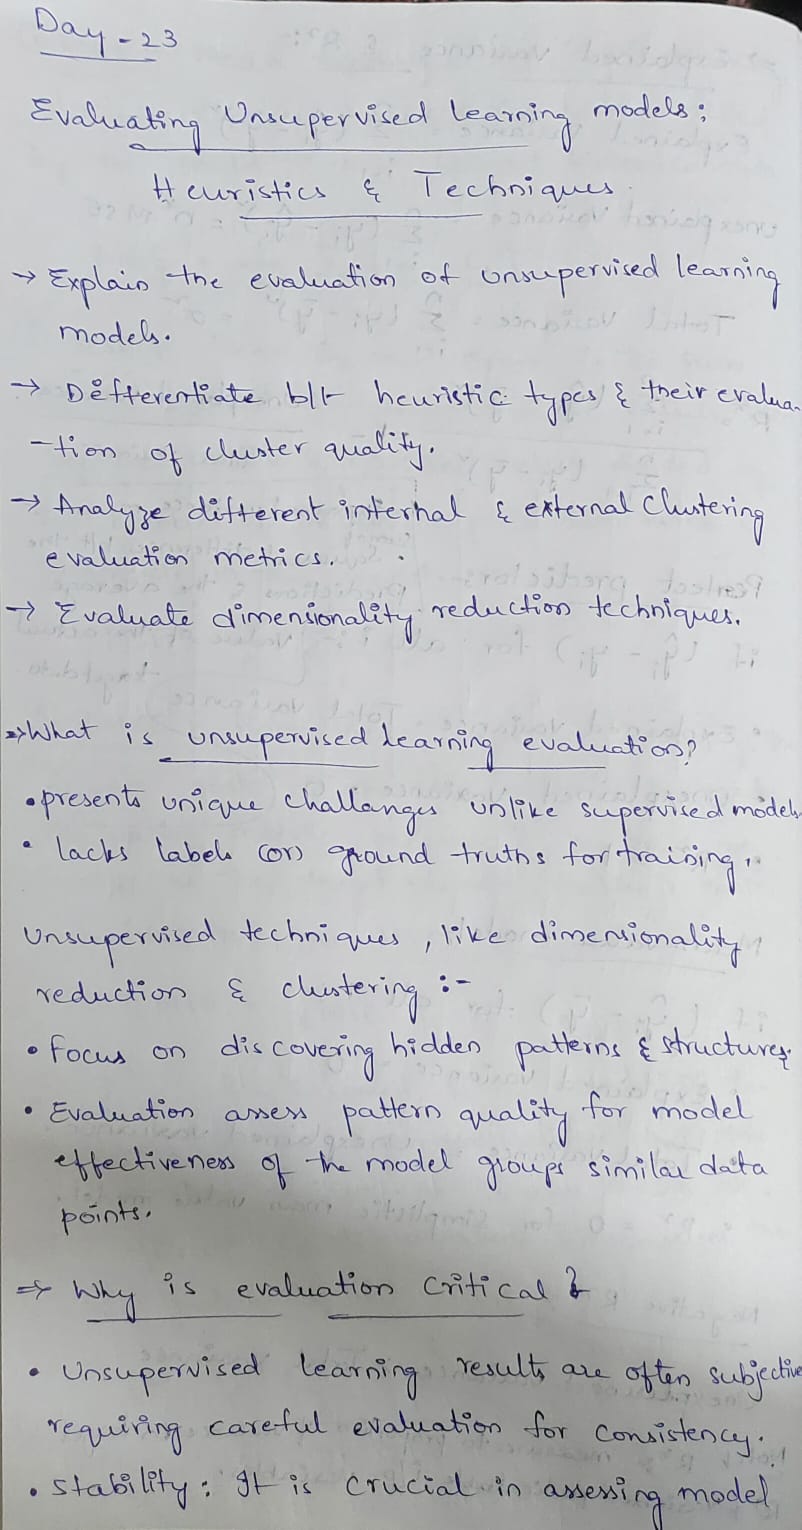 Day - 23
Evaluating Unsupervised learning models:
Heuristics & Techniques
→ Explain the evaluation of unsupervised learning
models.
→ Differentiate b/t heuristic types & their evalua-
-tion of cluster quality.
→ Analyze different internal & external Clustering
evaluation metrics.
→ Evaluate dimensionality reduction techniques.
⇒ What is unsupervised learning evaluation?
• presents unique challanges unlike supervised models
• lacks labels (or) ground truths for training.
Unsupervised techniques, like dimensionality
reduction & clustering :-
• Focus on discovering hidden patterns & structures.
• Evaluation assess pattern quality for model
effectiveness of the model groups similar data
points.
⇒ Why is evaluation critical?
• Unsupervised learning results are often subjective
requiring careful evaluation for consistency.
• Stability: It is crucial in assessing model